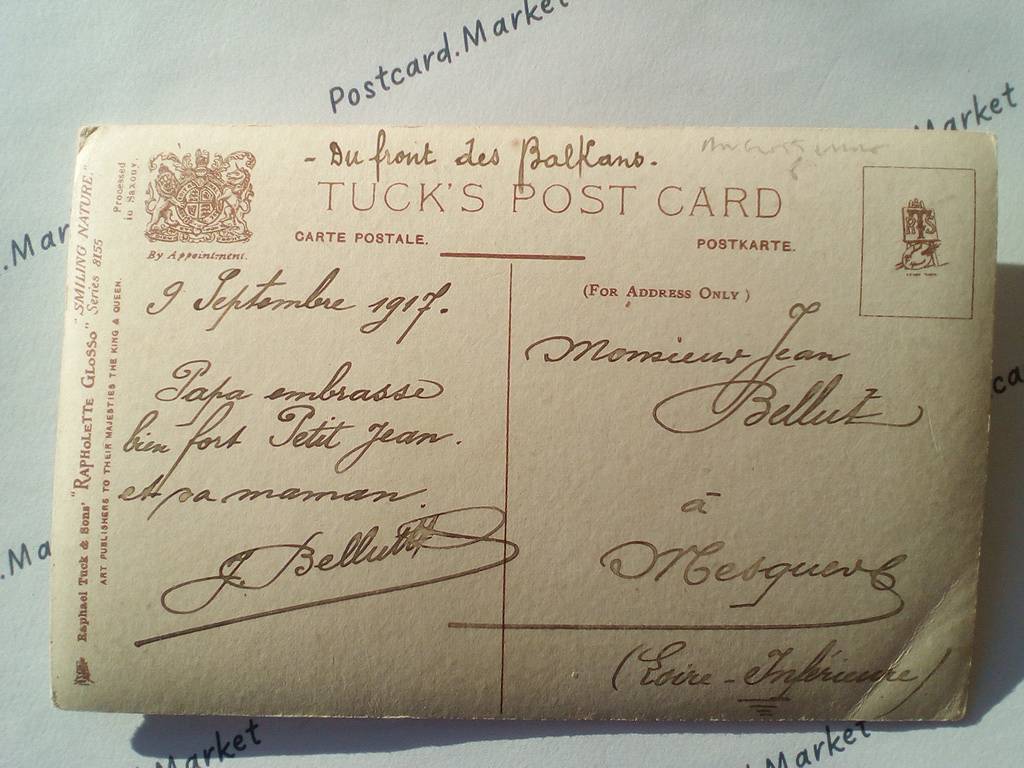 Postcard.Market
Market
.Mar
- Du front des Balkans. -
TUCK'S POST CARD
CARTE POSTALE.
POSTKARTE.
By Appointment.
(FOR ADDRESS ONLY)
RTS
Processed
in Saxony.
"SMILING NATURE."
Series 8155
Raphael Tuck & Sons' "RAPHOLETTE GLOSSO"
ART PUBLISHERS TO THEIR MAJESTIES THE KING & QUEEN.
9 Septembre 1917.
Papa embrasse
bien fort Petit Jean.
et sa maman
J. Bellut
Monsieur Jean
Bellut
à
Mesquer
(Loire-Inférieure)
ca
.Ma
arket
Market